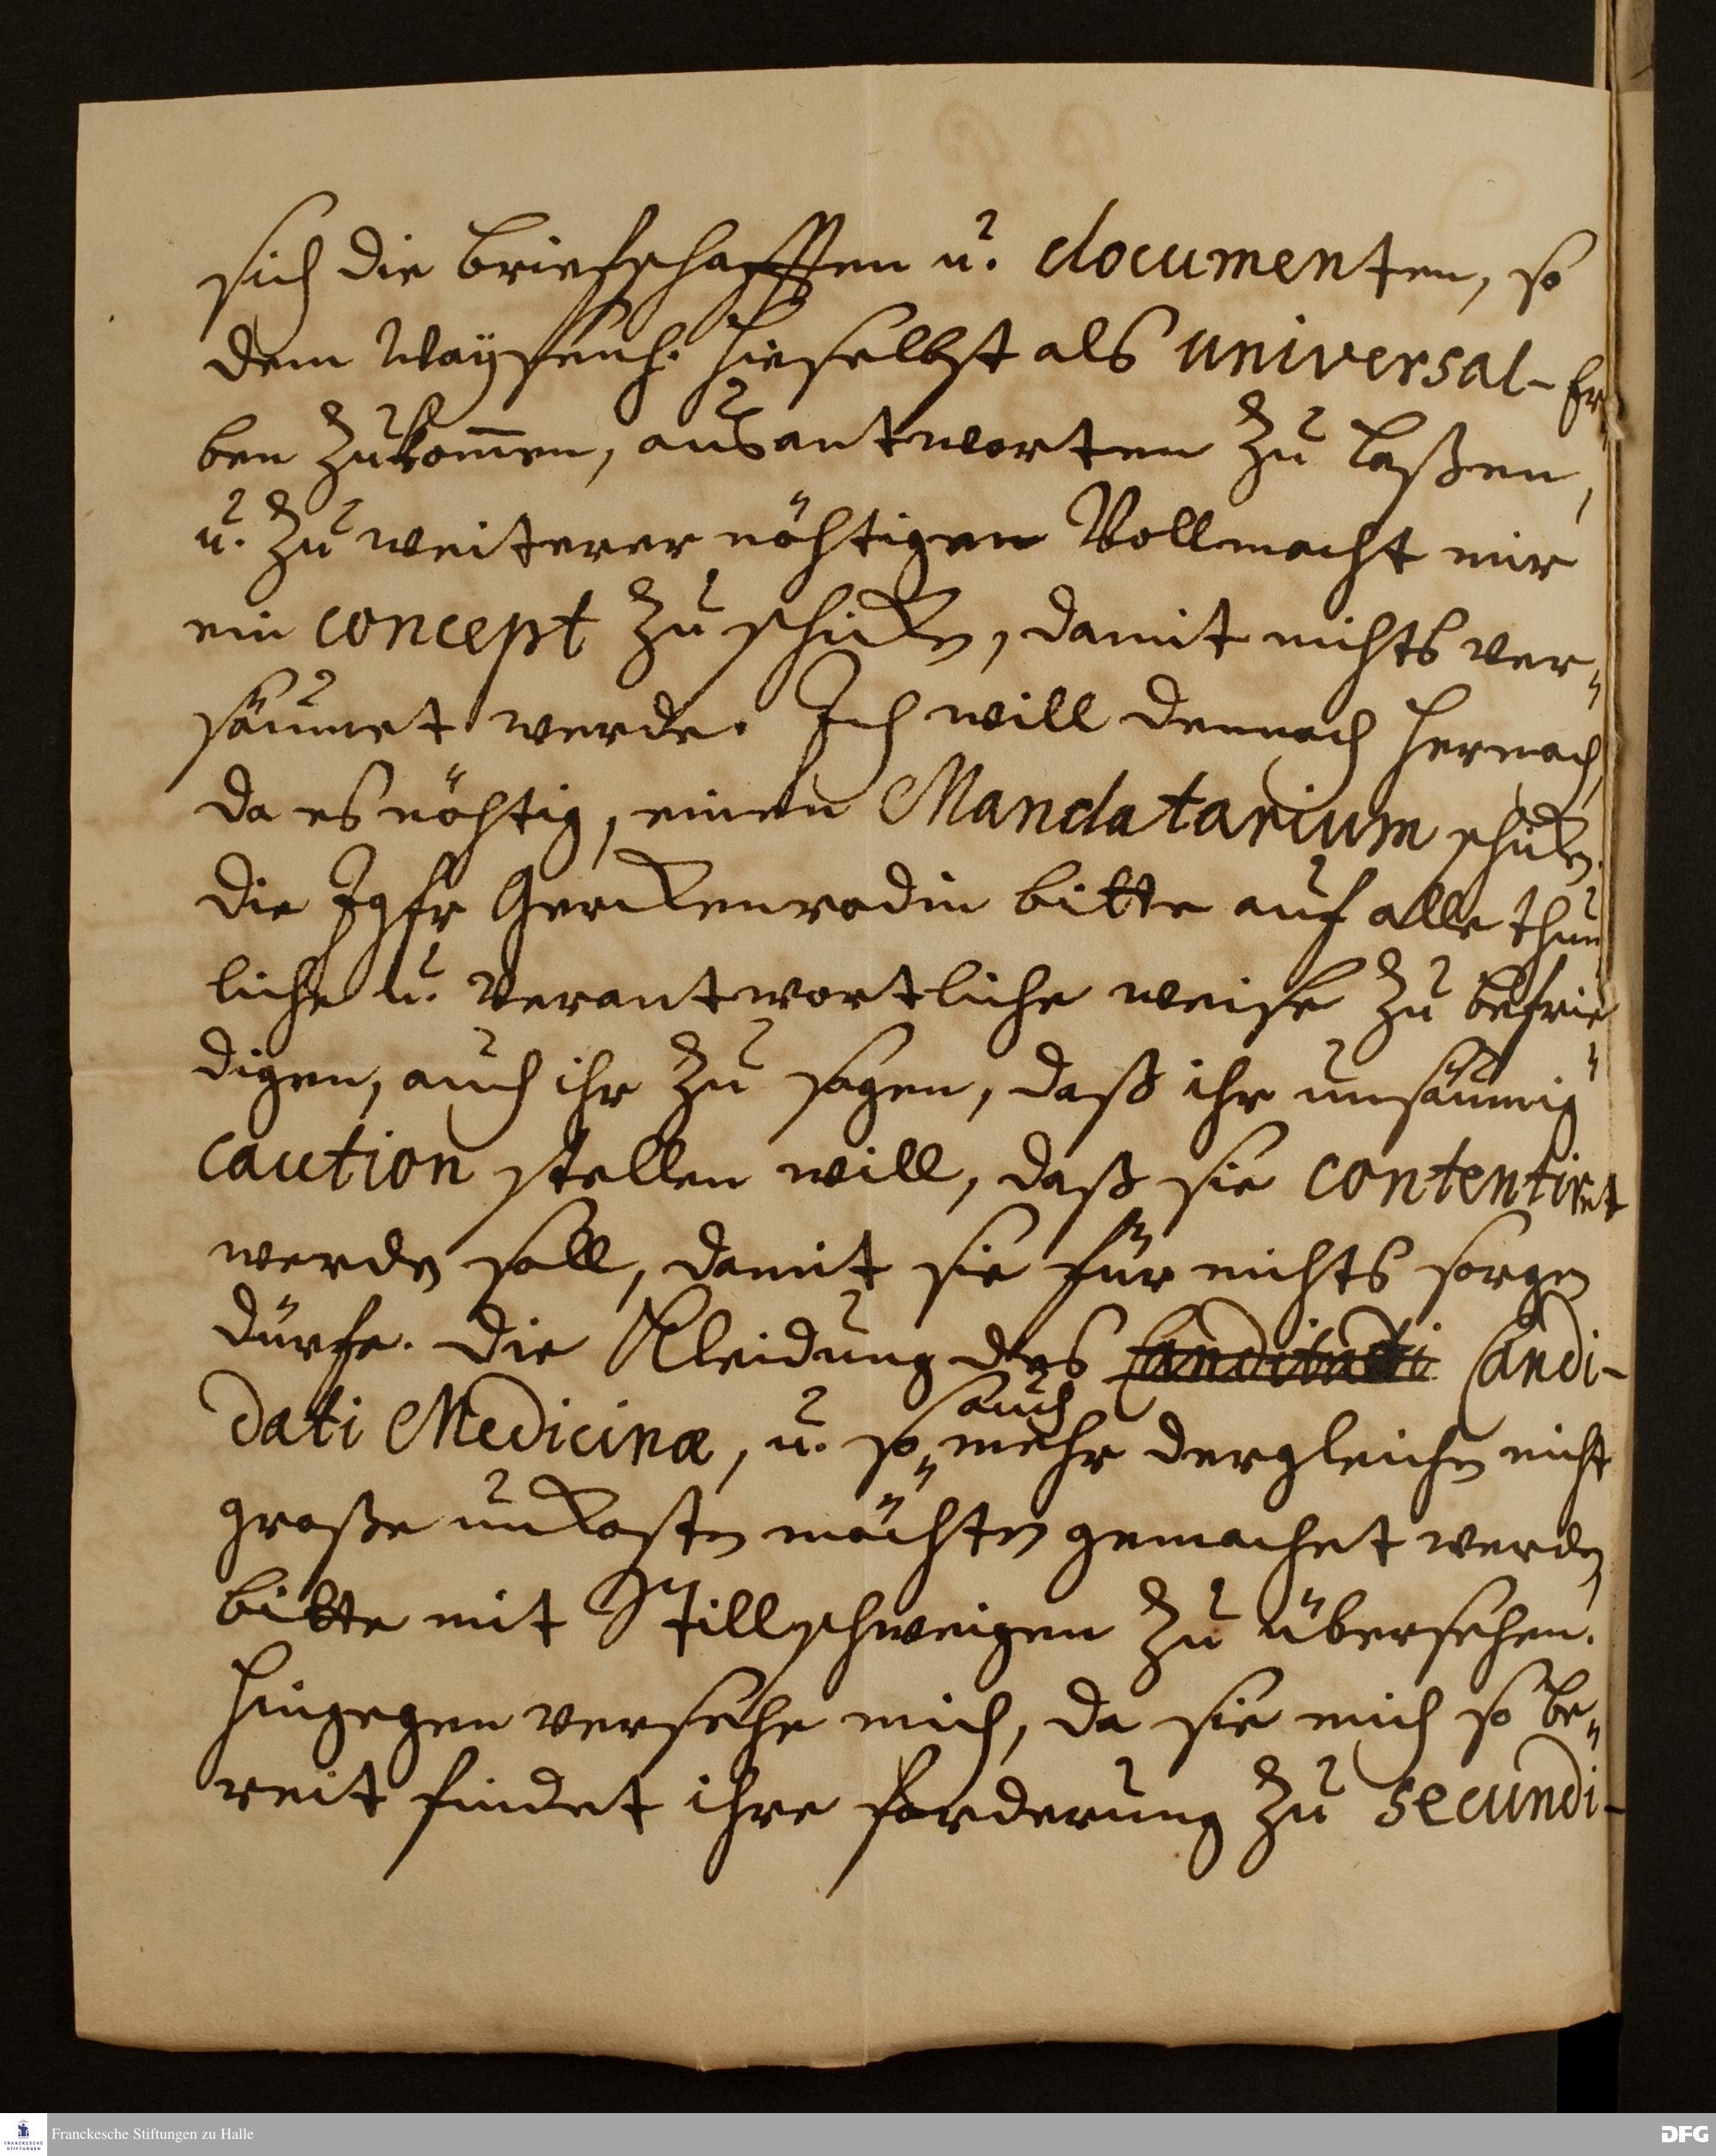 sich die briefschafften u. documenten, so
dem Waÿsenh. hieselbst als universal-Er
ben zukom̄en, ausantworten zu laßen,
u. zu weiterer nöhtigen Vollmacht mir
ein concept zu schicken, damit nichts ver„
säumet werde. Ich will dennoch hernach,
da es nöhtig, einen Mandatarium schicken.
die Jgfr Gerckenrodin bitte auf alle thun
liche u. verantwortliche weise zu befrie„
digen, auch ihr zu sagen, daß ihr unsäumig
caution stellen will, daß sie contentiret
werden soll, damit sie für nichts sorgen
dürfe. die Kleidung des Candi-
dati Medicinæ, u. so„ auch mehr dergleichen nicht
große unkosten möchten gemachet werden,
bitte mit Stillschweigen zu übersehen.
hingegen versehe mich, da sie mich so be„
reit findet ihre forderung zu secundi-
Franckesche Stiftungen zu Halle
FRANCKESCHE STIFTUNGEN
DFG